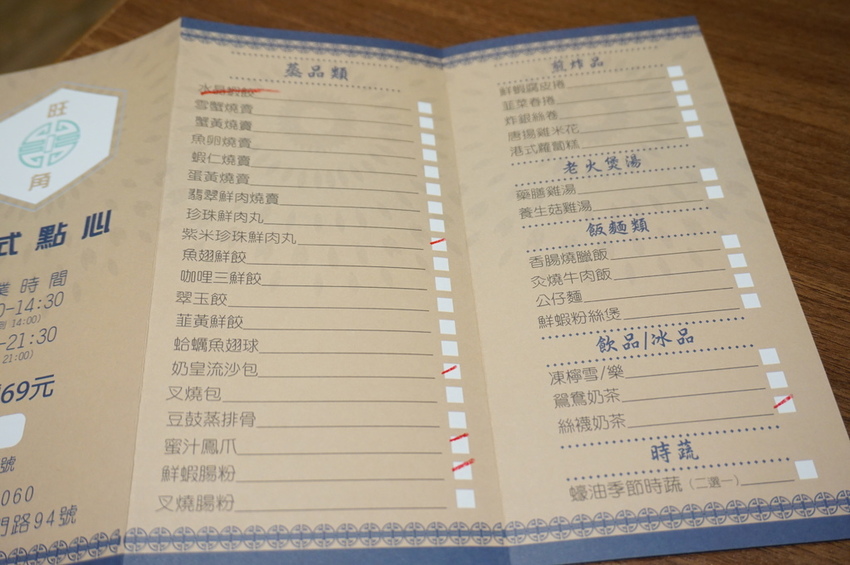 旺
角
式點心
業時間
0-14:30
14:00)
-21:30
21:00)
69元
號
060
門路94號
蒸品類
水晶蝦餃
雪蟹燒賣
蟹黃燒賣
魚卵燒賣
蝦仁燒賣
蛋黃燒賣
翡翠鮮肉燒賣
珍珠鮮肉丸
紫米珍珠鮮肉丸
魚翅鮮餃
咖哩三鮮餃
翠玉餃
韮黃鮮餃
蛤蠣魚翅球
奶皇流沙包
叉燒包
豆鼓蒸排骨
蜜汁鳳爪
鮮蝦腸粉
叉燒腸粉
煎炸品
鮮蝦腐皮捲
韮菜春捲
炸銀絲卷
唐揚雞米花
港式蘿蔔糕
老火煲湯
藥膳雞湯
養生菇雞湯
飯麵類
香腸燒臘飯
炙燒牛肉飯
公仔麵
鮮蝦粉絲煲
飲品/冰品
凍檸雪/樂
鴛鴦奶茶
絲襪奶茶
時蔬
蠔油季節時蔬(二選一)